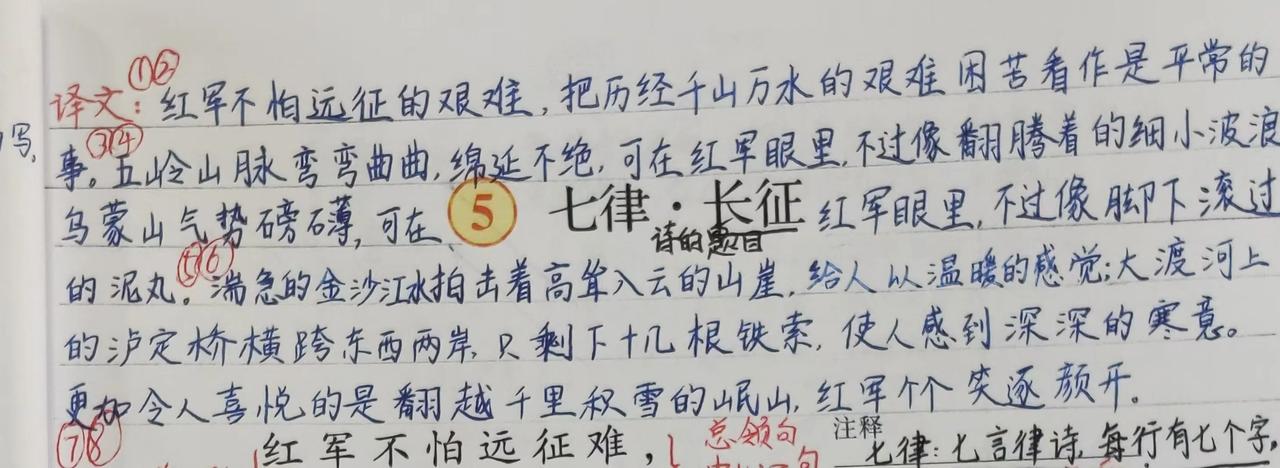 ①②
译文：红军不怕远征的艰难，把历经千山万水的艰难困苦看作是平常的
写，
③④
事。五岭山脉弯弯曲曲，绵延不绝，可在红军眼里，不过像翻腾着的细小波浪
乌蒙山气势磅礴，可在 5 七律·长征 红军眼里，不过像脚下滚过
诗的题目
⑤⑥
的泥丸。湍急的金沙江水拍击着高耸入云的山崖，给人以温暖的感觉；大渡河上
的泸定桥横跨东西两岸，只剩下十几根铁索，使人感到深深的寒意。
更加令人喜悦的是翻越千里积雪的岷山，红军个个笑逐颜开。
⑦⑧
红军不怕远征难， 总领句 注释 七律：七言律诗，每行有七个字，